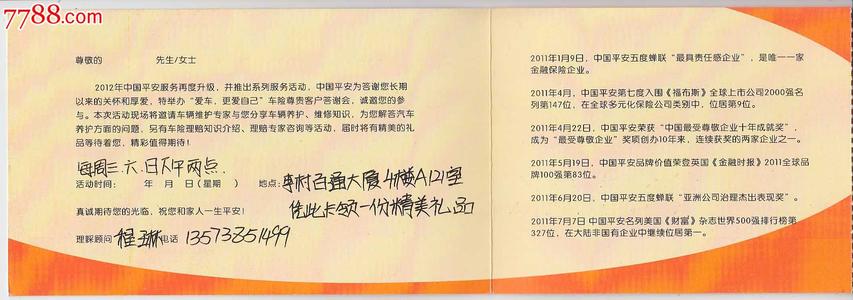 7788.com
尊敬的 先生/女士
2012年中国平安服务再度升级，并推出系列服务活动，中国平安为答谢您长期
以来的关怀和厚爱，特举办“爱车，更爱自己”车险尊贵客户答谢会，诚邀您的参
与。本次活动现场将邀请车辆维护专家与您分享车辆养护、维修知识，为您解答汽车
养护方面的问题，另有车险理赔知识介绍、理赔专家咨询等活动，届时将有精美的礼
品等待着您，精彩值得期待！
每周三.六.日下午两点.
活动时间： 年 月 日（星期 ） 地点：李村百通大厦4楼A121室
凭此卡领一份精美礼品
真诚期待您的光临，祝您和家人一生平安！
理睬顾问 程琳 电话 13573851499
2011年1月9日，中国平安五度蝉联“最具责任感企业”，是唯一一家
金融保险企业。
2011年4月，中国平安第七度入围《福布斯》全球上市公司2000强名
列第147位，在全球多元化保险公司类别中，位居第9位。
2011年4月22日，中国平安荣获“中国最受尊敬企业十年成就奖”，
成为“最受尊敬企业”奖项创办10年来，连续获奖的两家企业之一。
2011年5月19日，中国平安品牌价值荣登英国《金融时报》2011全球品
牌100强第83位。
2011年6月20日，中国平安五度蝉联“亚洲公司治理杰出表现奖”。
2011年7月7日 中国平安名列美国《财富》杂志世界500强排行榜第
327位，在大陆非国有企业中继续位居第一。